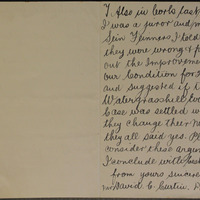 7. Also in Cork's last
I was a juror and m
Sein Finners I told
they were wrong & p
out the Improvemen
our Condition for
and suggested if t
Watergrasshill, tw
Case was settled w
they change their
they all said yes. Pl
consider these argu
I conclude
from yours sincere
Mr David C. Curtin,